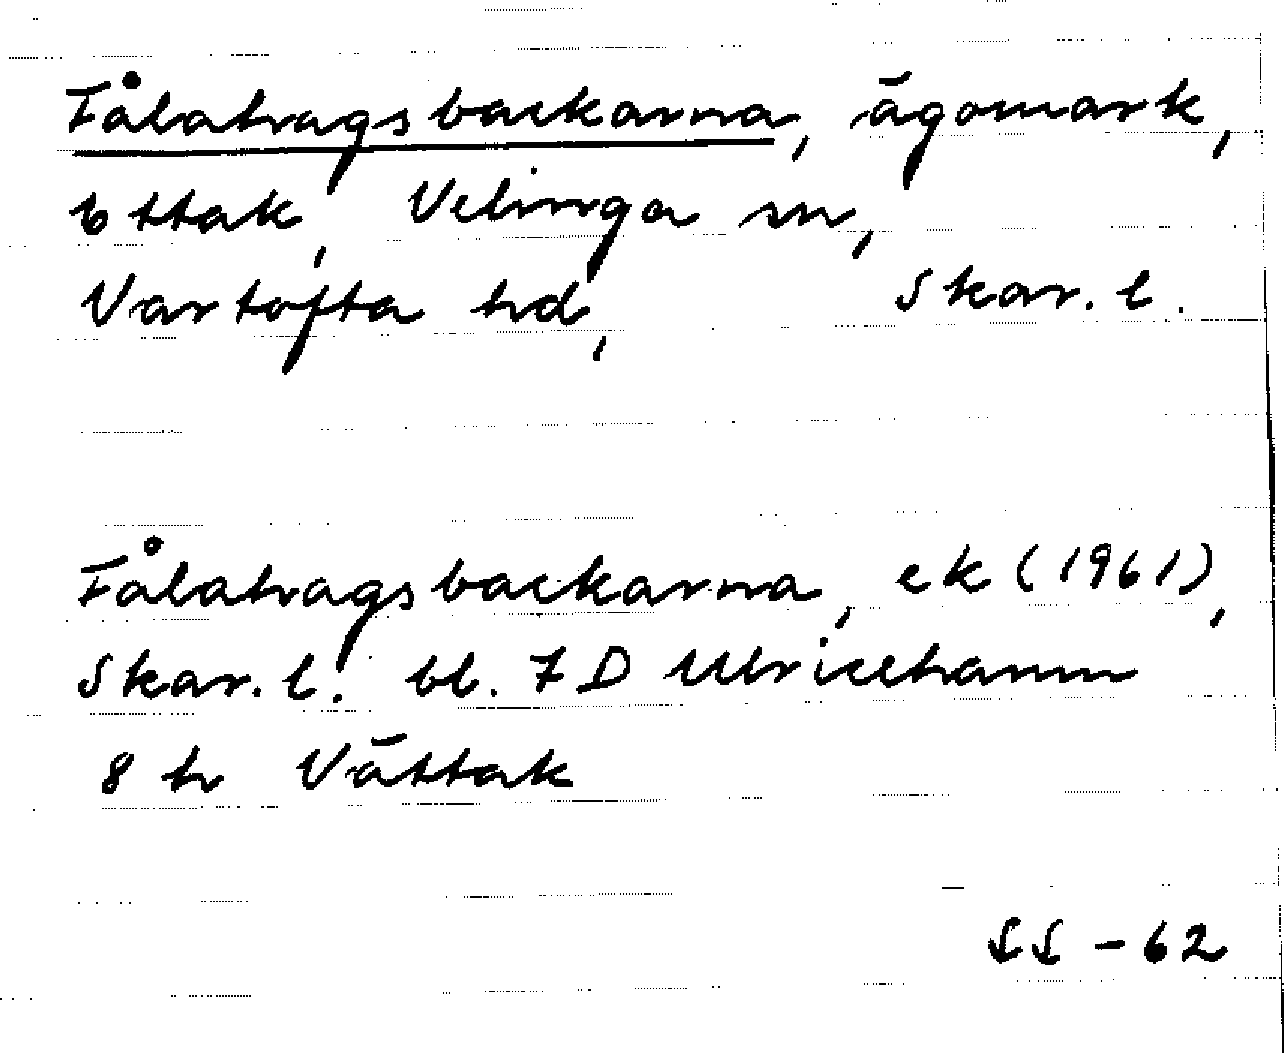 Fålahagsbackarna, ägomark,
Ettak, Velinga sn,
Vartofta hd, Skar. l.
Fålahagsbackarna, ek (1961),
Skar. l. bl. 7 D Ulricehamn
8 h Vättak
SS -62